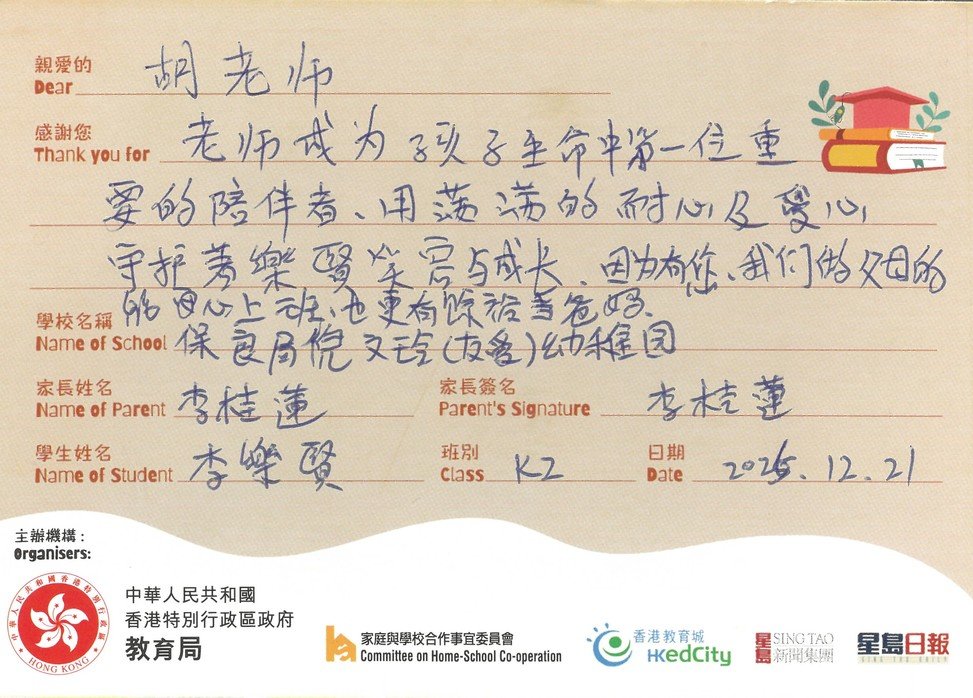 親愛的 胡老师
Dear
感謝您 老师成为孩子生命中第一位重
Thank you for
要的陪伴者、用满满的耐心及爱心
守护著樂賢 与成长、因为有您、我们做父母的
能 心上班、也更有餘
學校名稱
Name of School 保良局倪文玲(友爱)幼稚园
家長姓名 李桂蓮 家長簽名 李桂蓮
Name of Parent Parent's Signature
學生姓名 李樂賢 班別 K2 日期 2025.12.21
Name of Student Class Date
主辦機構:
Organisers:
中華人民共和國香港特別行政區
HONG KONG
中華人民共和國
香港特別行政區政府
教育局
家庭與學校合作事宜委員會
Committee on Home-School Co-operation
香港教育城
HKedCity
星島 SING TAO
新聞集團
星島日報
SING TAO DAILY